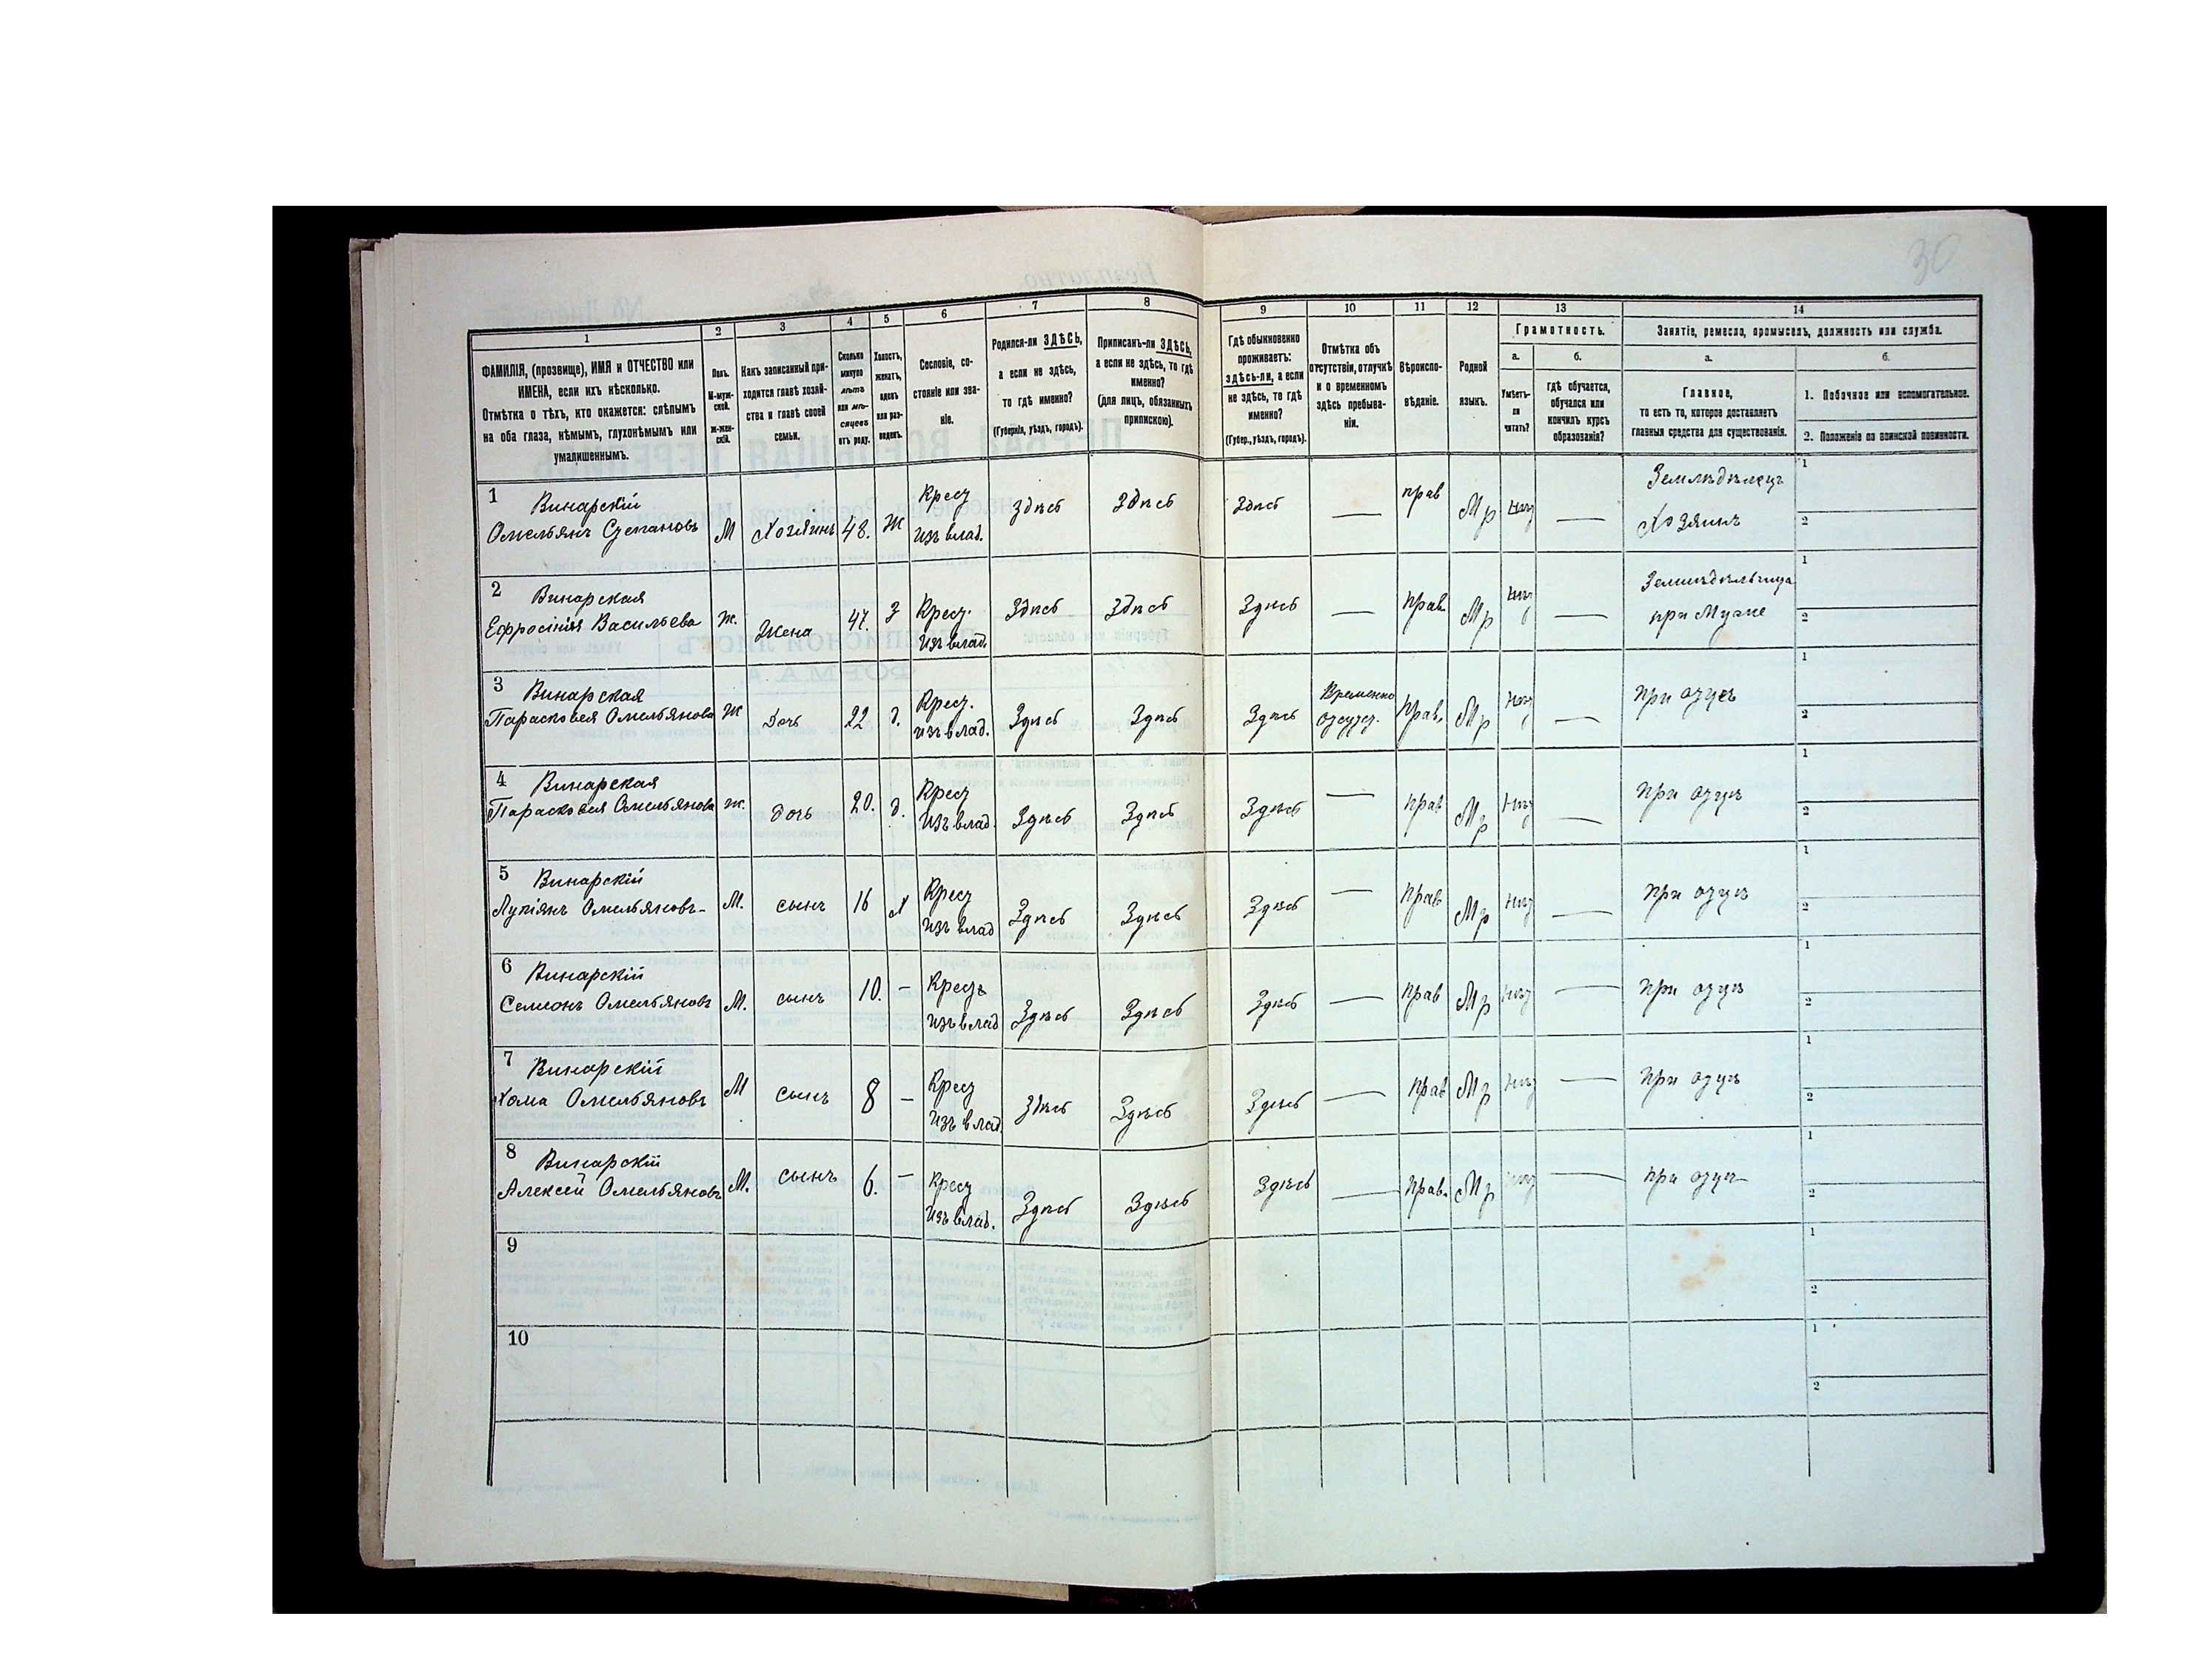 30
1 2 3 4 5 6 7 8 9 10 11 12 13 14
ФАМИЛІЯ, (прозвище), ИМЯ и ОТЧЕСТВО или
ИМЕНА, если ихъ нѣсколько.
Отмѣтка о тѣхъ, кто окажется: слѣпымъ
на оба глаза, нѣмымъ, глухонѣмымъ или
умалишеннымъ.
Полъ.
М-муж-
ской.
Ж-жен-
скій.
Какъ записанный при-
ходится главѣ хозяй-
ства и главѣ своей
семьи.
Сколько
минуло
лѣтъ
или мѣ-
сяцевъ
отъ роду.
Холостъ,
женатъ,
вдовъ
или раз-
веденъ.
Сословіе, со-
стояніе или зва-
ніе.
Родился-ли ЗДѢСЬ,
а если не здѣсь,
то гдѣ именно?
(Губернія, уѣздъ, городъ).
Приписанъ-ли ЗДѢСЬ,
а если не здѣсь, то гдѣ
именно?
(для лицъ, обязанныхъ
припискою).
Гдѣ обыкновенно
проживаетъ:
здѣсь-ли, а если
не здѣсь, то гдѣ
именно?
(Губер., уѣздъ, городъ).
Отмѣтка объ
отсутствіи, отлучкѣ
и о временномъ
здѣсь пребыва-
ніи.
Вѣроиспо-
вѣданіе.
Родной
языкъ.
Грамотность.
а.
Умѣетъ-
ли
читать?
б.
гдѣ обучается,
обучался или
кончилъ курсъ
образованія?
Занятіе, ремесло, промыселъ, должность или служба.
а.
Главное,
то есть то, которое доставляетъ
главныя средства для существованія.
б.
1. Побочное или вспомогательное.
2. Положеніе по воинской повинности.
1 Винарскій
Омельянъ Степановъ М Хозяинъ 48. Ж Крест изъ влад. Здѣсь Здѣсь Здѣсь — прав Мр нѣт — Земледѣлецъ Хозяинъ 1 2
2 Винарская
Ефросінія Васильева Ж. Жена 47. З Крест. изъ влад. Здѣсь Здѣсь Здѣсь — прав. Мр нѣт — при Мужe 1 2
3 Винарская
Парасковея Омельянова Ж Дочь 22 д. Крест. изъ влад. Здѣсь Здѣсь Здѣсь Временно отсутст. прав. Мр нѣт — при отцѣ 1 2
4 Винарская
Парасковея Омельянова Ж. дочь 20. д. Крест изъ влад. Здѣсь Здѣсь Здѣсь — прав Мр нѣт — при отцѣ 1 2
5 Винарскій
Лупіянъ Омельяновъ М. сынъ 16 Х Крест изъ влад Здѣсь Здѣсь Здѣсь — прав Мр нѣт — при отцѣ 1 2
6 Винарскій
Семіонъ Омельяновъ М. сынъ 10. — Крестъ изъ влад Здѣсь Здѣсь Здѣсь — прав Мр нѣт — при отцѣ 1 2
7 Винарскій
Хома Омельяновъ М сынъ 8 — Крест изъ влад. Здѣсь Здѣсь Здѣсь — прав Мр нѣт — при отцѣ 1 2
8 Винарскій
Алексѣй Омельяновъ М. сынъ 6. — Крест изъ влад. Здѣсь Здѣсь Здѣсь — прав. Мр нѣт — при отцѣ 1 2
9 1 2
10 1 2